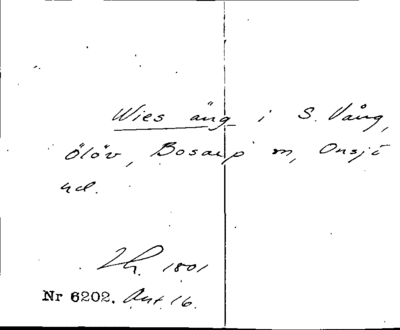 Wies äng i S. Vång,
Ölöv, Bosarp m, Onsjö
hd.
1801
Nr 6202. Ant. 16.